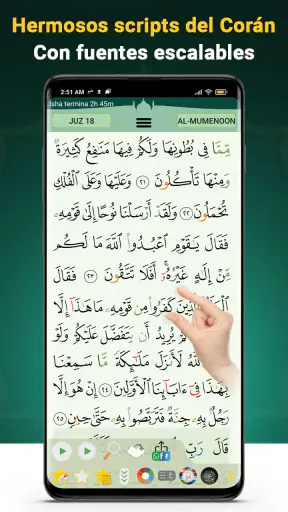 Hermosos scripts del Corán
Con fuentes escalables
2:51 AM
Isha termina 2h 45m
JUZ 18
AL-MUMENOON
مِّمَّا فِي بُطُونِهَا وَلَكُمْ فِيهَا مَنَافِعُ كَثِيرَةٌ
وَمِنْهَا تَأْكُلُونَ ﴿٢١﴾ وَعَلَيْهَا وَعَلَى الْفُلْكِ
تُحْمَلُونَ ﴿٢٢﴾ وَلَقَدْ أَرْسَلْنَا نُوحًا إِلَىٰ قَوْمِهِ
فَقَالَ يَـٰقَوْمِ اعْبُدُوا اللَّهَ مَا لَكُم
مِّنْ إِلَـٰهٍ غَيْرُهُ أَفَلَا تَتَّقُونَ ﴿٢٣﴾ فَقَالَ
الَّذِينَ كَفَرُوا مِن قَوْمِهِ مَا هَـٰذَا إِلَّا
يُرِيدُ أَن يَتَفَضَّلَ عَلَيْكُمْ وَلَوْ
اللَّهُ لَأَنزَلَ مَلَـٰٓئِكَةً مَّا سَمِعْنَا
بِهَـٰذَا فِي ءَابَآئِنَا الْأَوَّلِينَ ﴿٢٤﴾ إِنْ هُوَ إِلَّا
رَجُلٌ بِهِ جِنَّةٌ فَتَرَبَّصُوا بِهِ حَتَّىٰ حِينٍ ﴿٢٥﴾
قَالَ رَبِّ